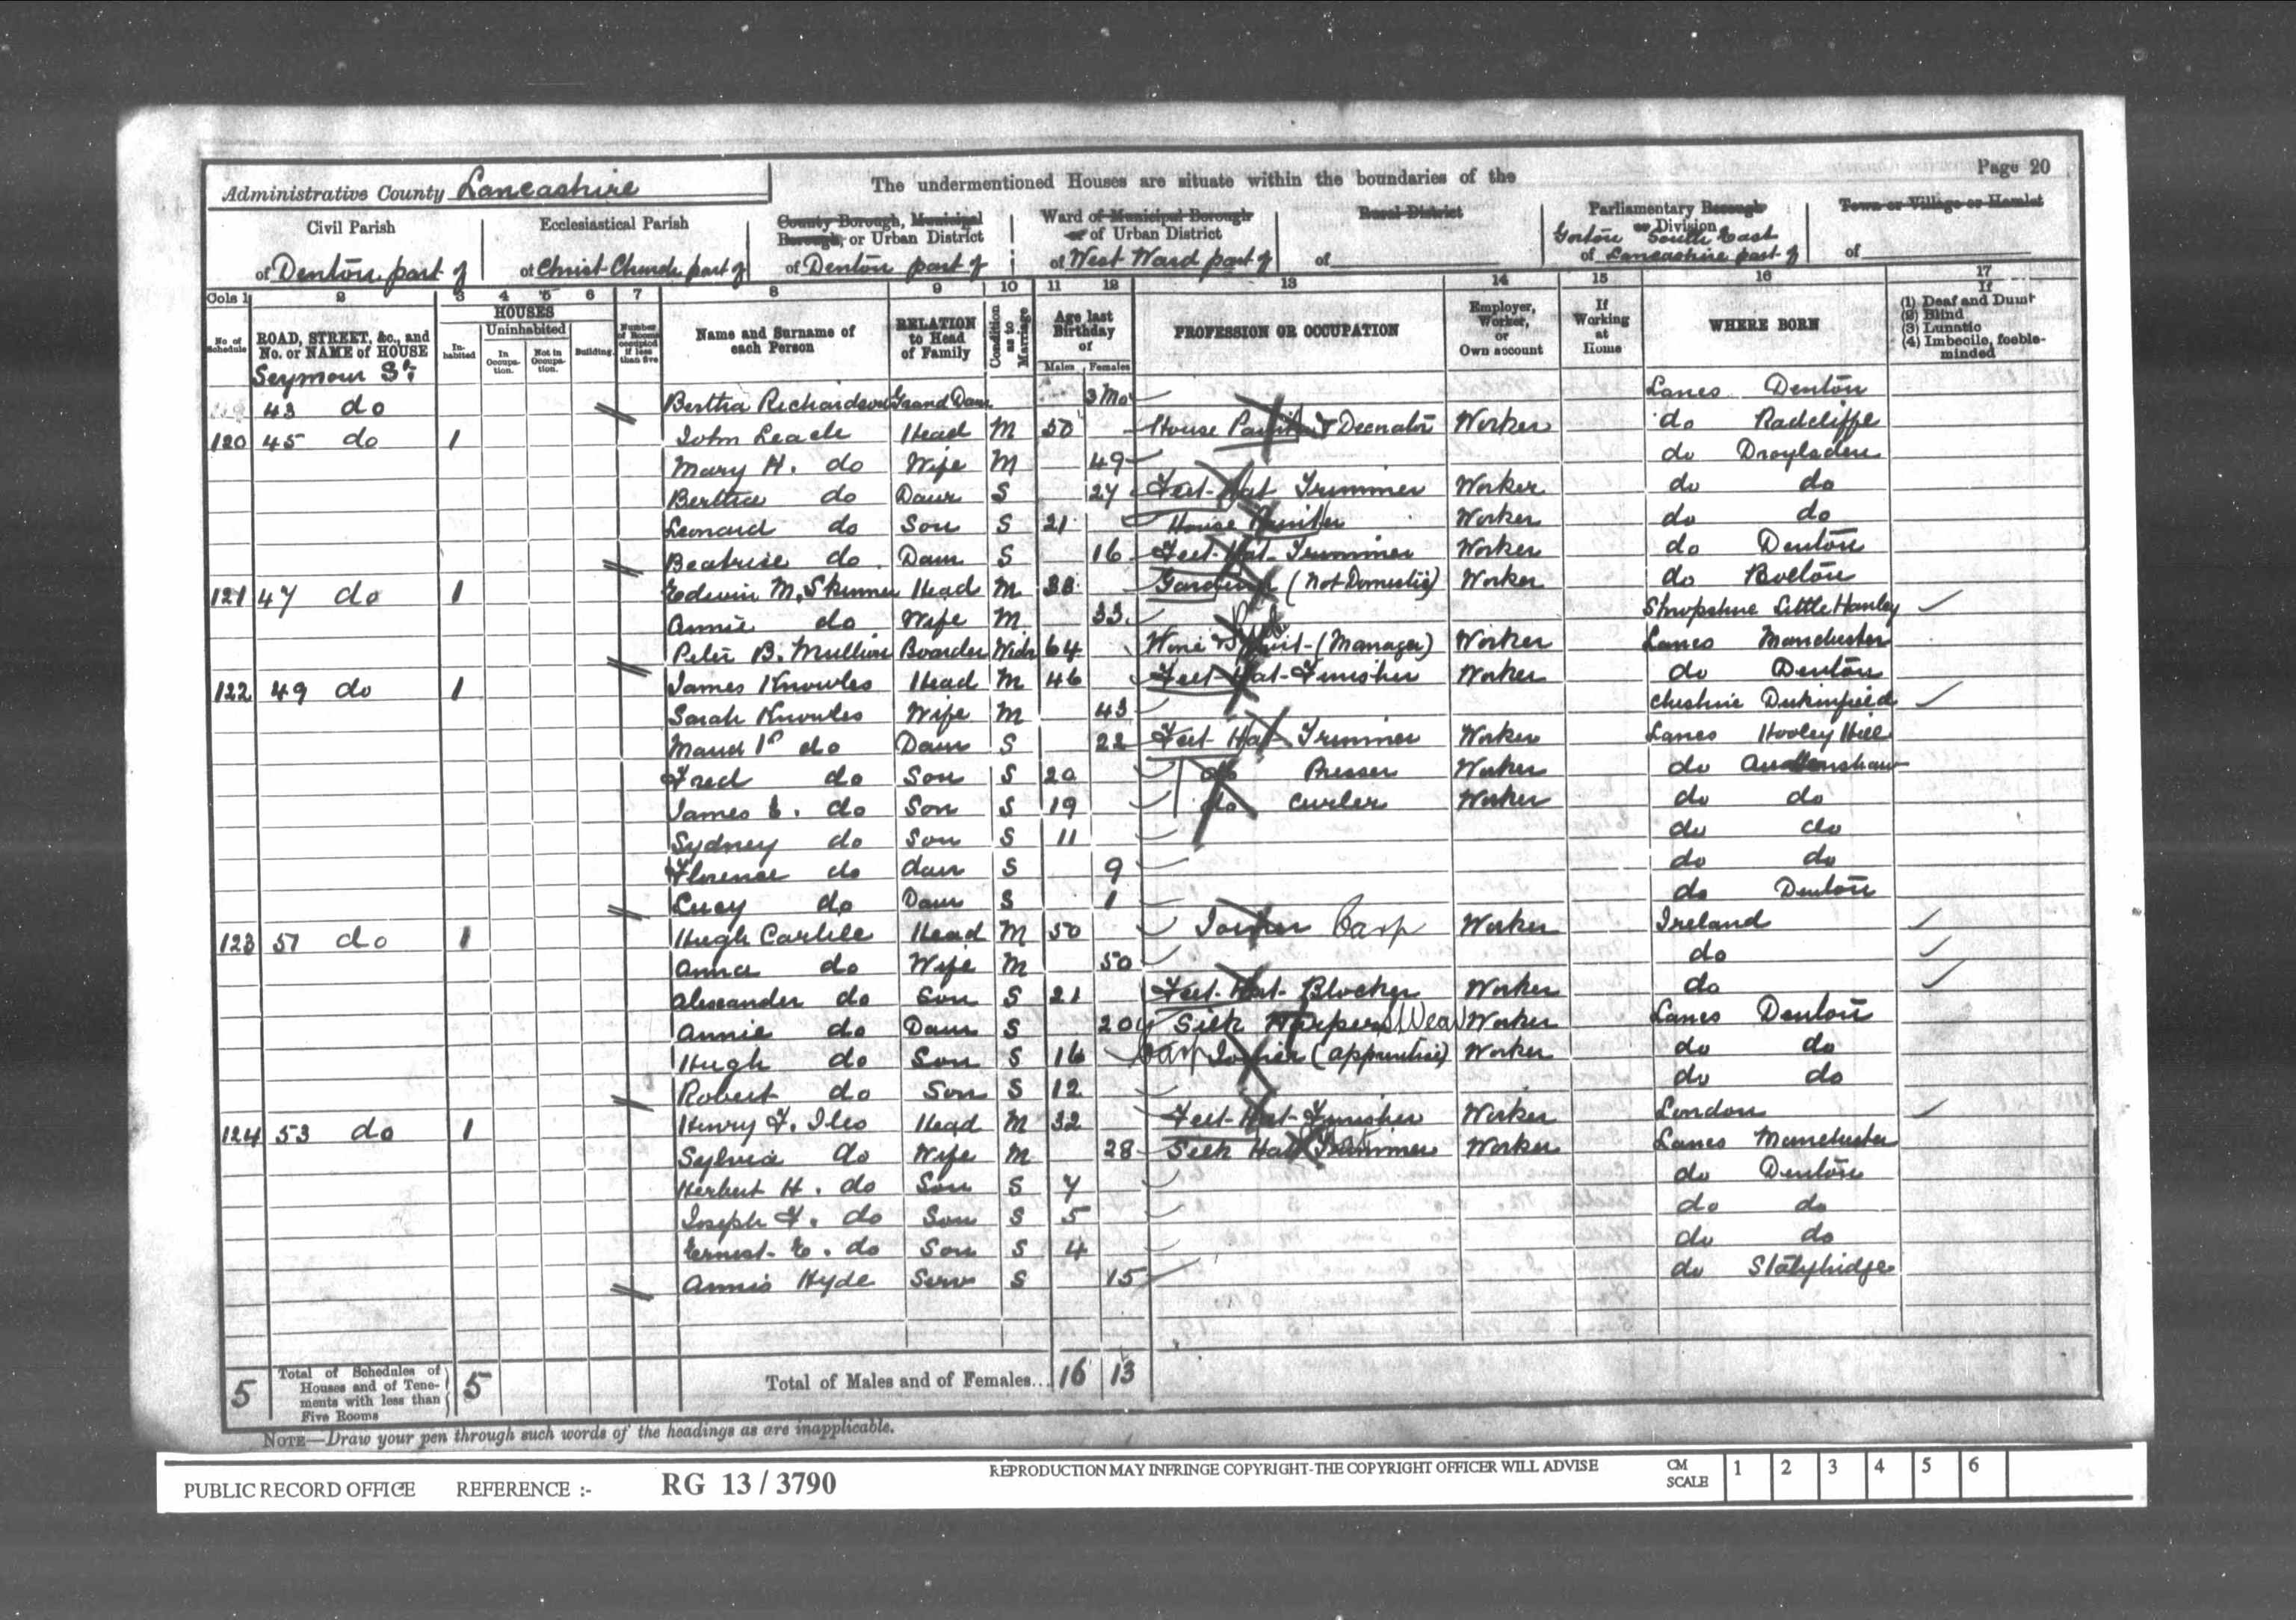 Page 20
Administrative County Lancashire
The undermentioned Houses are situate within the boundaries of the
Civil Parish
of Denton part of
Ecclesiastical Parish
of Christ Church part of
County Borough, Municipal Borough, or Urban District
of Denton part of
Ward of Municipal Borough or of Urban District
of West Ward part of
Rural District
of
Parliamentary Borough or Division
Gorton South East
of Lancashire part of
Town or Village or Hamlet
of
Cols 1 2 3 4 5 6 7 8 9 10 11 12 13 14 15 16 17
No. of Schedule
ROAD, STREET, &c., and No. or NAME of HOUSE
HOUSES
Inhabited
Uninhabited
In Occupation.
Not in Occupation.
Building.
Number of Rooms occupied if less than five
Name and Surname of each Person
RELATION to Head of Family
Condition as to Marriage
Age last Birthday of
Males Females
PROFESSION OR OCCUPATION
Employer, Worker, or Own account
If Working at Home
WHERE BORN
If
(1) Deaf and Dumb
(2) Blind
(3) Lunatic
(4) Imbecile, feeble-minded
Seymour St.
43 do Bertha Richardson Grand Daur 3 Mo Lancs Denton
120 45 do 1 John Leach Head M 50 House Painter & Decorator Worker do Radcliffe
Mary H. do Wife M 49 do Droylsden
Bertha do Daur S 27 Felt-Hat Trimmer Worker do do
Leonard do Son S 21 House Painter Worker do do
Beatrice do Daur S 16 Felt-Hat-Trimmer Worker do Denton
121 47 do 1 Edwin M. Skinner Head M 33 Gardener (Not Domestic) Worker do Bolton
Annie do Wife M 33 Shropshire Little Hanley
Peter B. Mullion Boarder Widr 64 Wine & Spirit-(Manager) Worker Lancs Manchester
122 49 do 1 James Knowles Head M 46 Felt Hat-Finisher Worker do Denton
Sarah Knowles Wife M 43 Cheshire Dukinfield
Maud do Daur S 22 Felt-Hat Trimmer Worker Lancs Hooley Hill
Fred do Son S 20 do Presser Worker do Audenshaw
James E. do Son S 19 do Curler Worker do do
Sydney do Son S 11 do do
Florence do daur S 9 do do
Lucy do Daur S 1 do Denton
123 51 do 1 Hugh Carlile Head M 50 Joiner Carp Worker Ireland
Anna do Wife M 50 do
Alexander do Son S 21 Felt-Hat-Blocker Worker do
Annie do Daur S 20 Silk Worker Lancs Denton
Hugh do Son S 16 Carp Joiner (apprentice) Worker do do
Robert do Son S 12 do do
124 53 do 1 Henry F. Iles Head M 32 Felt-Hat-Finisher Worker London
Sylvia do Wife M 28 Silk Hat Trimmer Worker Lancs Manchester
Herbert H. do Son S 7 do Denton
Joseph F. do Son S 5 do do
Ernest E. do Son S 4 do do
Annie Hyde Serv S 15 do Stalybridge
5 Total of Schedules of Houses and of Tenements with less than Five Rooms 5
Total of Males and of Females... 16 13
NOTE—Draw your pen through such words of the headings as are inapplicable.
PUBLIC RECORD OFFICE REFERENCE :- RG 13 / 3790
REPRODUCTION MAY INFRINGE COPYRIGHT-THE COPYRIGHT OFFICER WILL ADVISE
CM SCALE 1 2 3 4 5 6